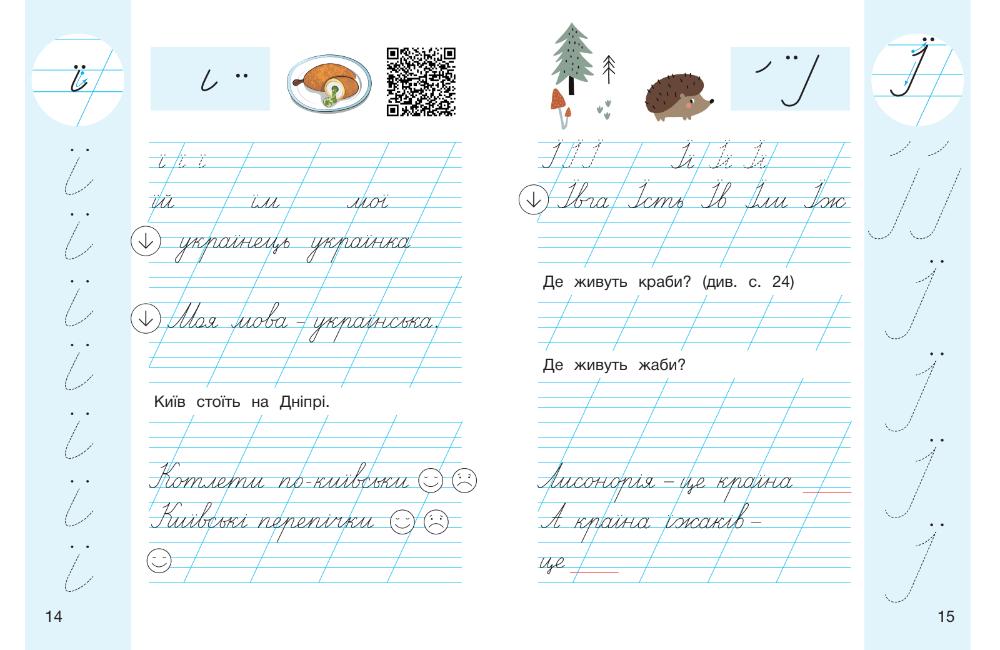 ї
ї ї ї
їй їм мої
українець українка
Моя мова – українська.
Київ стоїть на Дніпрі.
Котлети по-київськи
Київські перепічки
ї
ї
ї
ї
ї
ї
ї
14
Ї
Ї Ї Ї Її Її Її
Ївга Їсть Їв Їли Їж
Де живуть краби? (див. с. 24)
Де живуть жаби?
Лисонорія – це країна
А країна їжаків –
це
Ї
Ї
Ї
Ї
15